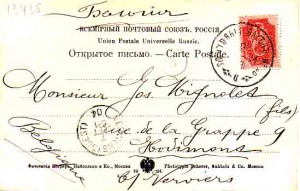 13435
Бельгия
ВСЕМІРНЫЙ ПОЧТОВЫЙ СОЮЗЪ. РОССІЯ.
Union Postale Universelle Russie.
Открытое письмо. — Carte Postale.
Monsieur Jos. Mignolet
(fils)
rue de la Grappe 9
Hodimont
Belgique
Phototypie Scherer, Nabholz & Co. Moscou
s/ Verviers